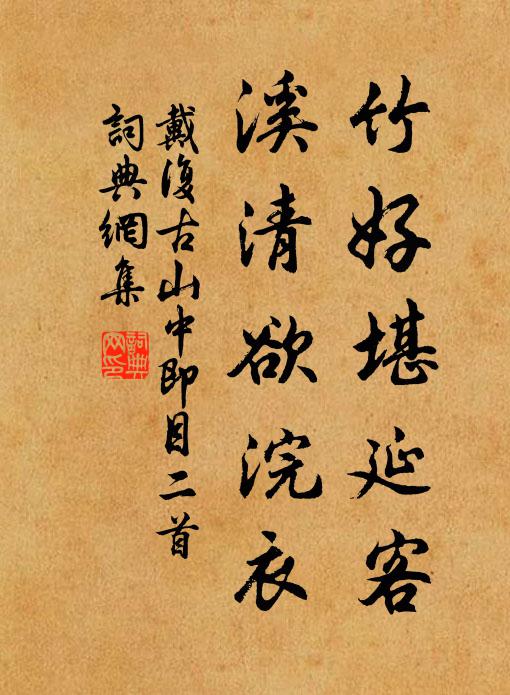 竹好堪延客
溪清欲浣衣
戴復古山中即目二首
詞典網集
詞典
网印